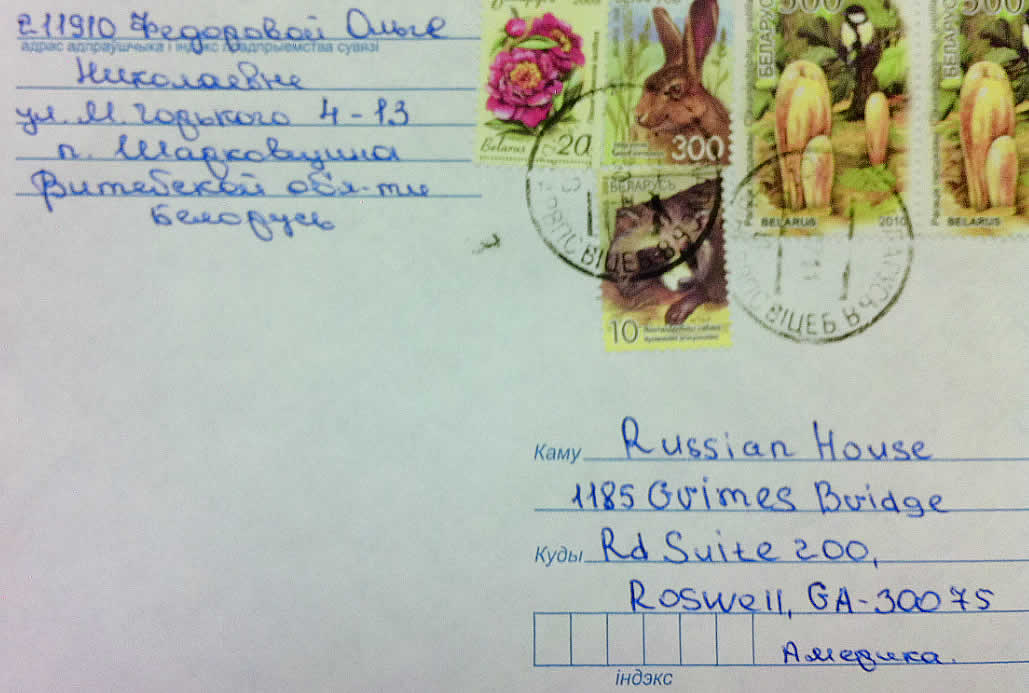 211910 Федоровой Ольге
адрас адпраўшчыка і індэкс прадпрыемства сувязі
Николаевне
ул. М. Горького 4-13
п. Шарковщина
Витебской обл-ти
Белорусь
Belarus 20
300
БЕЛАРУСЬ
10
БЕЛАРУСЬ 500
BELARUS 2010
500
BELARUS
ВІЦЕБ
ВІЦЕБ
Каму Russian House
1185 Grimes Bridge
Куды Rd Suite 200,
Roswell, GA-30075
Америка.
індэкс